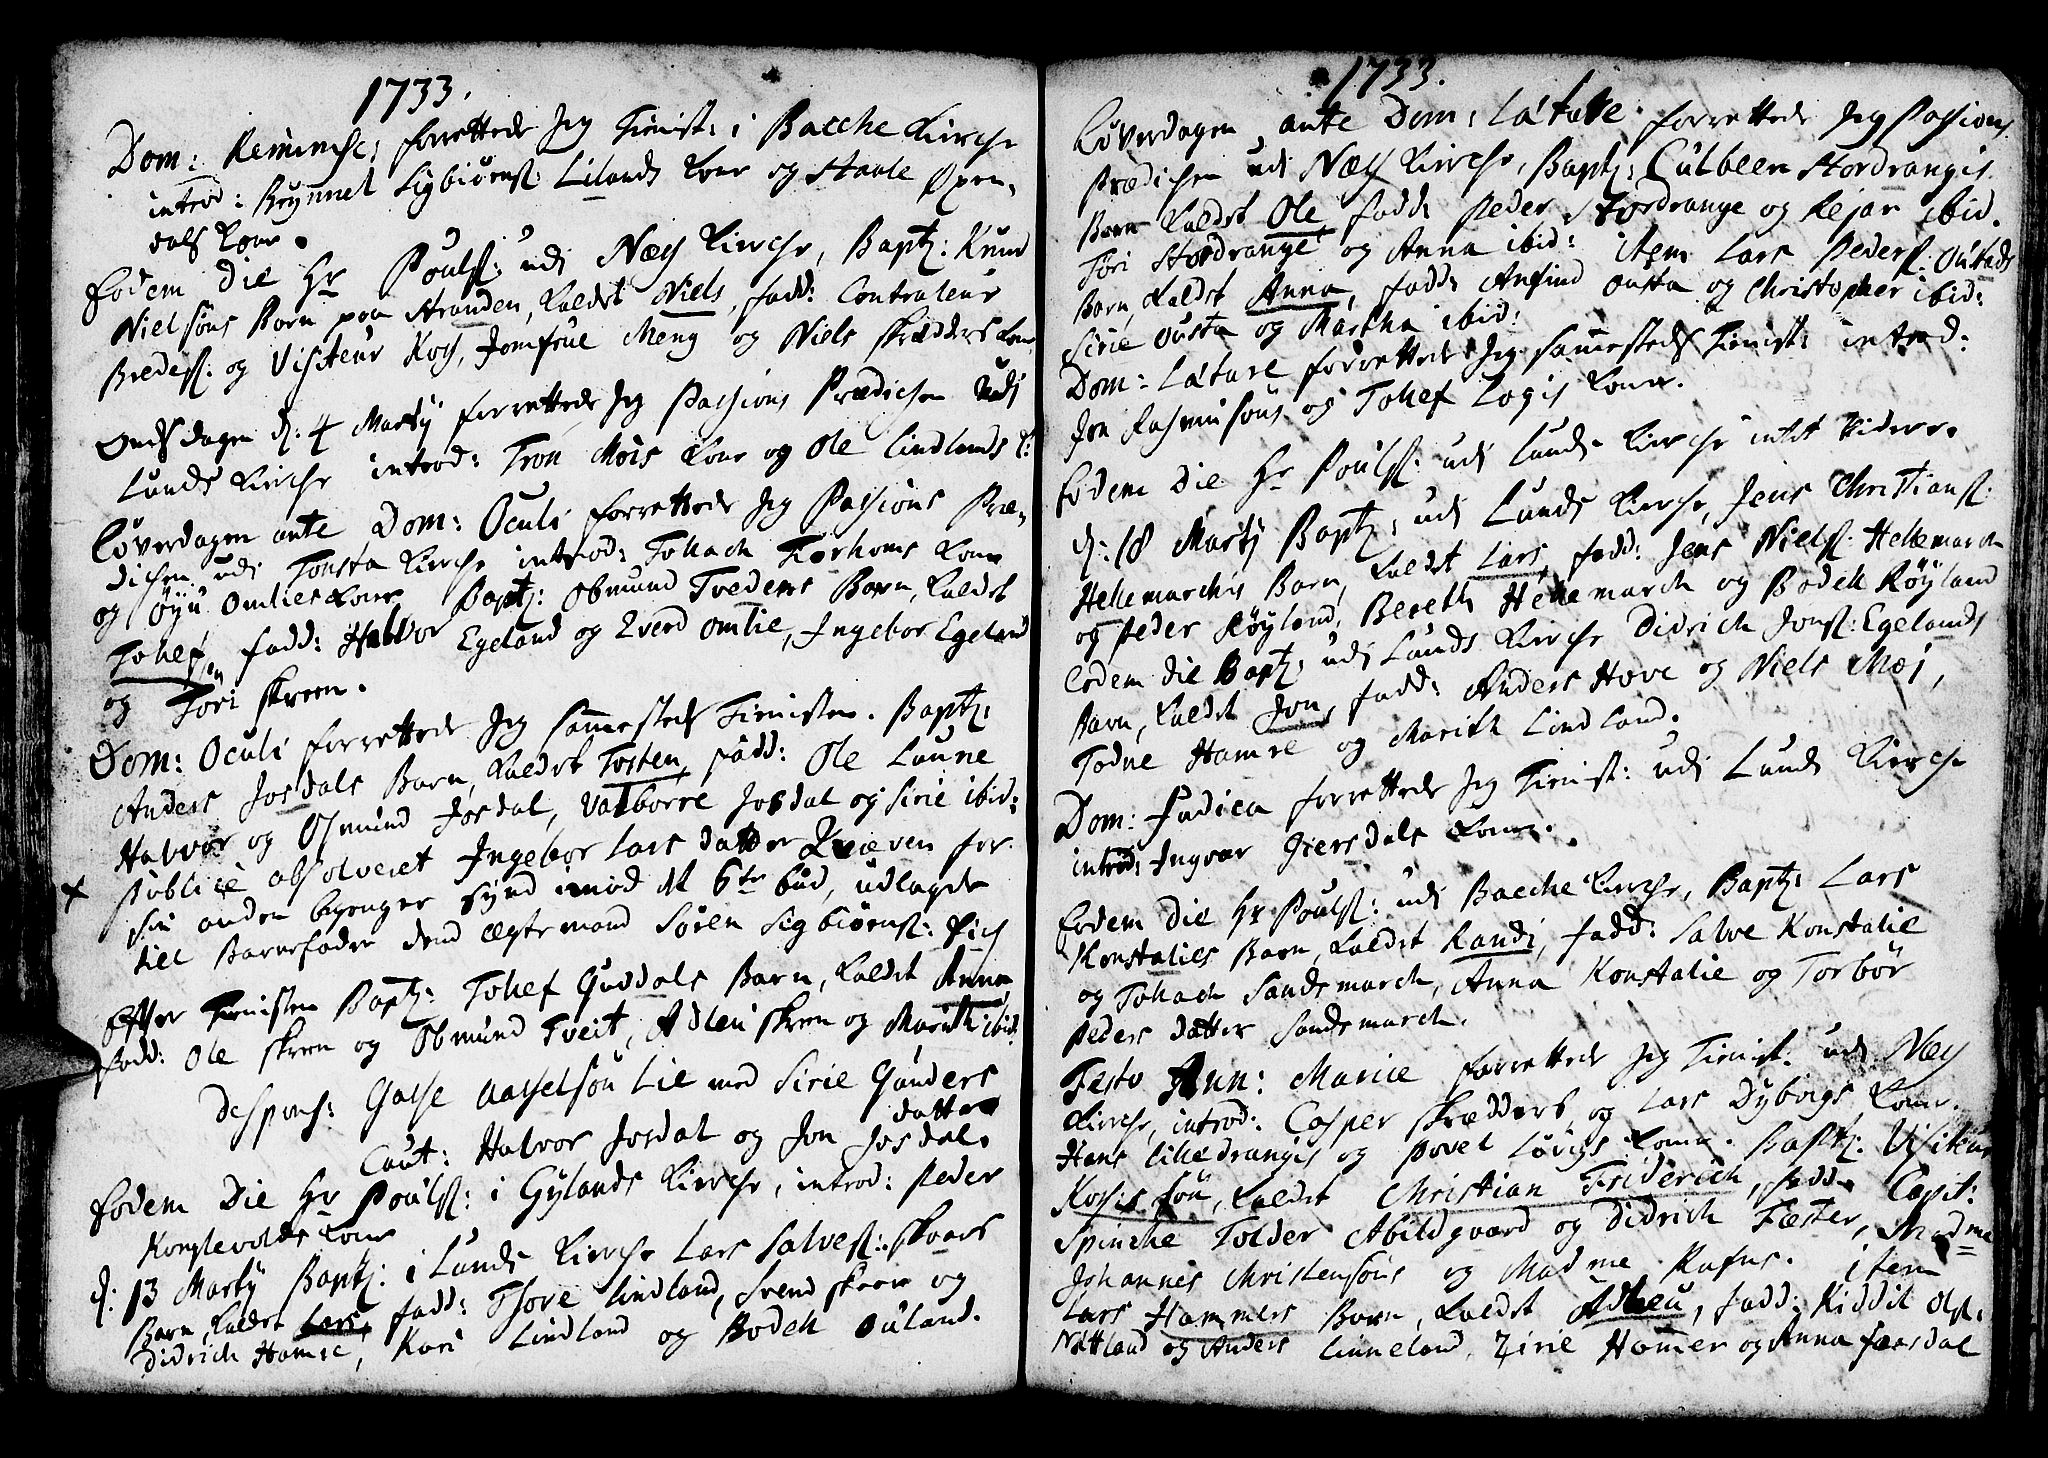 1733.
Dom: Reminisc: forrettede Jeg Tienist: i Bacche Kirche
introd: Brynnel Sigbiørns: Lilands Kone og Staale Øxen,
dals Kone.
Eodem Die Hr Pouls: udi Næs Kirche, Bapt: Knud
Nielsøns Barn paa Stranden, kaldet Niels, fadd: Contraleur
Bredes: og Visiteur Koss, Jomfrue Meng og Niels Skrædders Kone
Onsdagen d: 4 Martij forrettede Jeg Passions Prædichen udi
Lunds Kirche introd: Tron Mois Kone og Ole Lindlands K:
Løverdagen ante Dom: Oculi forrettede Jeg Passions Præ,
dichen udi Tonsta Kirche introd: Tollach Førhoms Kone
og Øyu Omlies Kone Bapt: Obmund Tvedens Barn, kaldet
Tollef, fadd: Halvor Egeland og Everd Omlie, Ingebor Egeland
og Tori Skreen.
Dom: Oculi forrettede Jeg sammesteds Tienisten. Bapt:
Anders Josdals Barn, kaldet Tosten, fadd: Ole Laune
Halvor og Osmund Josdal, Valborre Josdal og Sirie ibid:
publicè absolveret Ingebor Lars datter Qvæven for
sin anden begangen synd imod det 6te bud, udlagde
till Barnefader dend ægte mand Søren Sigbiørns:
Efter Tienisten Bapt: Tollef Guddals Barn, kaldet Anna
fadd: Ole Skreen og Obmund Tveit, Adleu Skreen og Marith ibid:
Despons: Gasse Aasselsøn Lie med Sirie Gunders
datter
Caut: Halvor Josdal og Jon Josdal.
Eodem Die Hr Pouls: i Gylands Kirche, introd: Peder
Konglevolds Kone
d: 13 Martij Bapt: i Lunds Kirche Lars Salves: Skaars
Barn, kaldet Lars, fadd: Thore Lindland, Svend Skreen og
Didrich Hamre, Kari Lindland og Bodell Ouland.
1733.
Løverdagen ante Dom: Lætare forrettede Jeg Passions
Prædichen udi Næss Kirche, Bapt: Culbeen Stordrangis
Barn kaldet Ole, fadd: Peder Stordrange og Rejar ibid.
Tori Stordrange og Anna ibid: item Lars Peders: Oustads
Barn, kaldet Anna, fadd: Anfind Ousta og Christopher ibid:
Sirie Ousta og Martha ibid:
Dom: Lætare forrettede Jeg sammesteds Tienist: introd:
Jon Rasmusøns og Tollef Logis Koner.
Eodem Die Hr Pouls: udi Lunds Kirche intet videre.
d: 18 Martij Bapt: udi Lunds Kirche, Jens Christians:
Hellemarchs Barn, kaldet Lars, fadd: Jens Niels: Hellemarch
og Peder Røyland, Bereth Hellemarch og Bodell Røyland
Eodem Die Bapt: udi Lunds Kirche Didrich Jons: Egelands
Barn, kaldet Jon, fadd: Anders Hove og Niels Moi,
Todne Hamre og Marith Lindland.
Dom: Judica forrettede Jeg Tienist: udi Lunds Kirche
introd: Ingvar Giersdals Kone.
Eodem Die Hr Pouls: udi Bacche Kirche, Bapt: Lars
Konstalies Barn, kaldet Randi, fadd: Salve Konstalie
og Tollach Sandsmarch, Anna Konstalie og Torbor
Peders datter Sandsmarch.
Festo Ann: Mariæ forrettede Jeg Tienist: udi Næs
Kirche, introd: Casper Skrædders og Lars Dyborgs Koner.
Hans Lilledrangis og Povel Løvigs Koner. Bapt: Visiteur
Kosses søn, kaldet Christian Friderich, fadd: Capit:
Spinche Tolder Abildgaard og Didrich Fester, Madme
Johannes Christensøns og Madme Rafns. item
Lars Hammers Barn, kaldet Adleu, fadd: Kiddil Ols:
Nattland og Anders Linneland, Zirie Hammer og Anna Faasdal